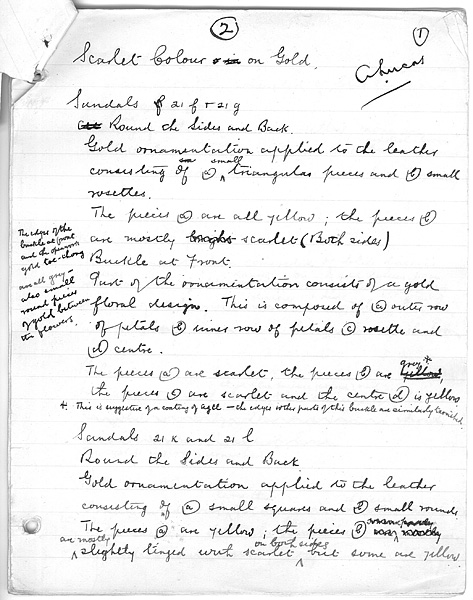 2
1
Scarlet Colour on Gold.
A Lucas
Sandals 21 f + 21 g
Round the Sides and Back.
Gold ornamentation applied to the leather
consisting of (a) small triangular pieces and (b) small
rosettes.
The pieces (a) are all yellow; the pieces (b)
are mostly bright scarlet (Both sides)
Buckle at Front.
Part of the ornamentation consists of a gold
floral design. This is composed of (a) outer row
of petals (b) inner row of petals (c) rosette and
(d) centre.
The pieces (a) are scarlet, the pieces (b) are grey* yellow,
the pieces (c) are scarlet and the centre (d) is yellow
*. This is suggestive of a coating of - the edges other parts of this buckle are similarly tarnished.
The edges of the
buckle at front
and the openwork
gold toe-thong
are all grey -
also small
round pieces
of gold between
the flowers.
Sandals 21 k and 21 l
Round the Sides and Back
Gold ornamentation applied to the leather
consisting of (a) small squares and (b) small rounds.
The pieces (a) are yellow; the pieces (b)
are mostly slightly tinged with scarlet on both sides but some are yellow